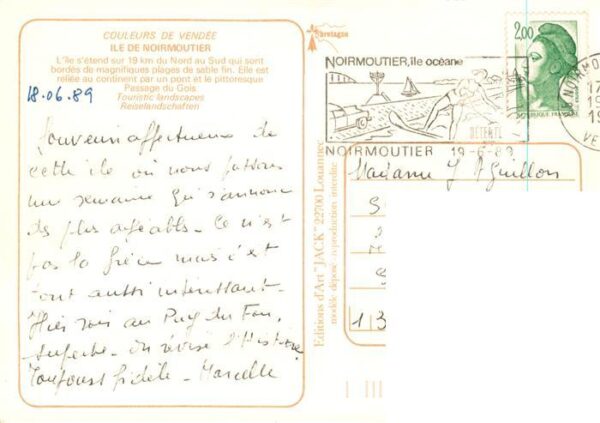 COULEURS DE VENDÉE
ILE DE NOIRMOUTIER
L'île s'étend sur 19 km du Nord au Sud qui sont
bordés de magnifiques plages de sable fin. Elle est
reliée au continent par un pont et le pittoresque
Passage du Gois
Touristic landscapes
Reiselandschaften
18.06.89
Souvenir affectueux de
cette île où nous passons
une semaine qui s'annonce
des plus agréables. Ce n'est
pas la Grèce mais c'est
tout aussi intéressant.
Hier soir au Puy du Fou,
superbe. On révise l'Histoire
Toujours fidèle. Marcelle
Editions d'Art "JACK" 22700 Louannec
modèle déposé reproduction interdite
NOIRMOUTIER, île océane
DÉTENTE
NOIRMOUTIER 19-6-89
2,00
REPUBLIQUE FRANÇAISE
NOIRMO
17
19
VE
Madame Y Aguillon
13